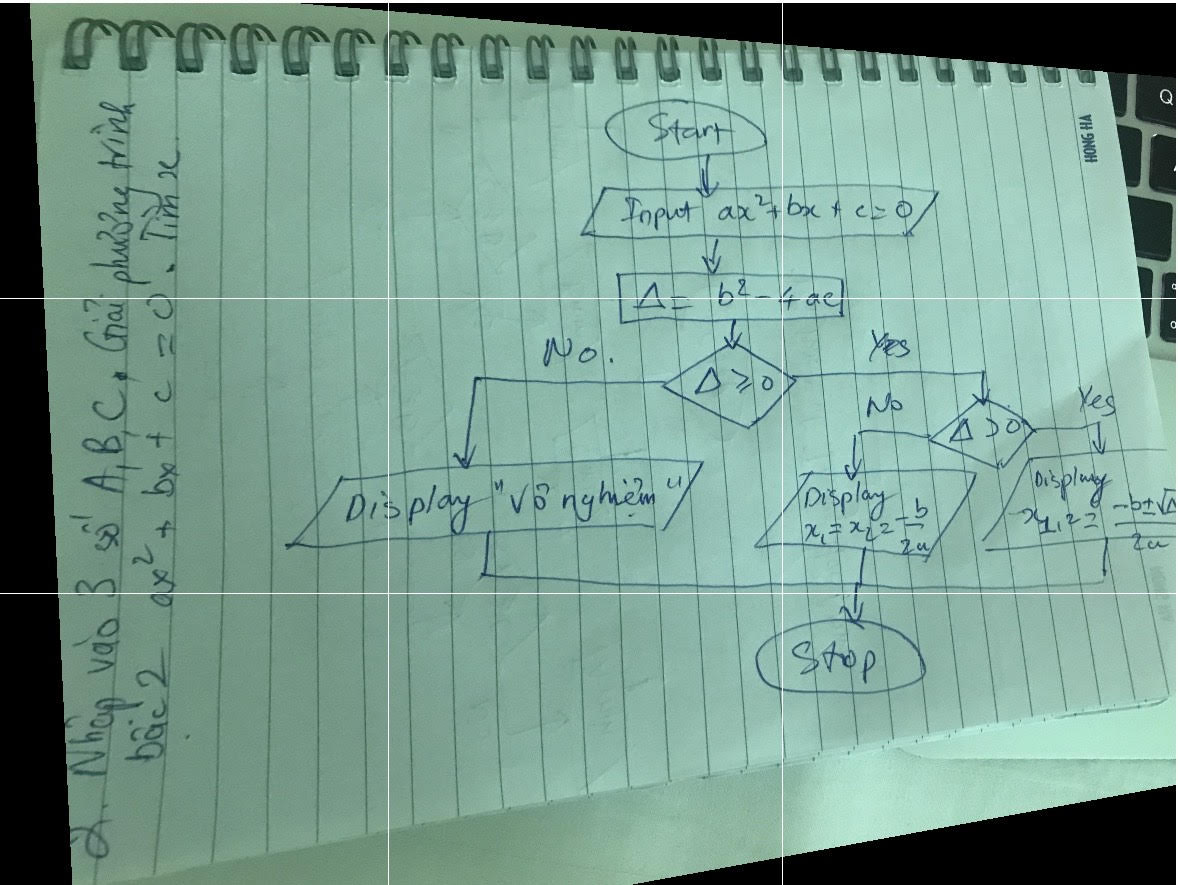 2. Nhập vào 3 số A, B, C. Giải phương trình
bậc 2 ax² + bx + c = 0. Tìm x.
Start
Input ax² + bx + c = 0
Δ = b² - 4ac
Δ ≥ 0
No.
Yes
Δ > 0
No
Yes
Display "Vô nghiệm"
Display
x₁ = x₂ = -b/2a
Display
x₁,₂ = -b±√Δ/2a
Stop
HONG HA
Q